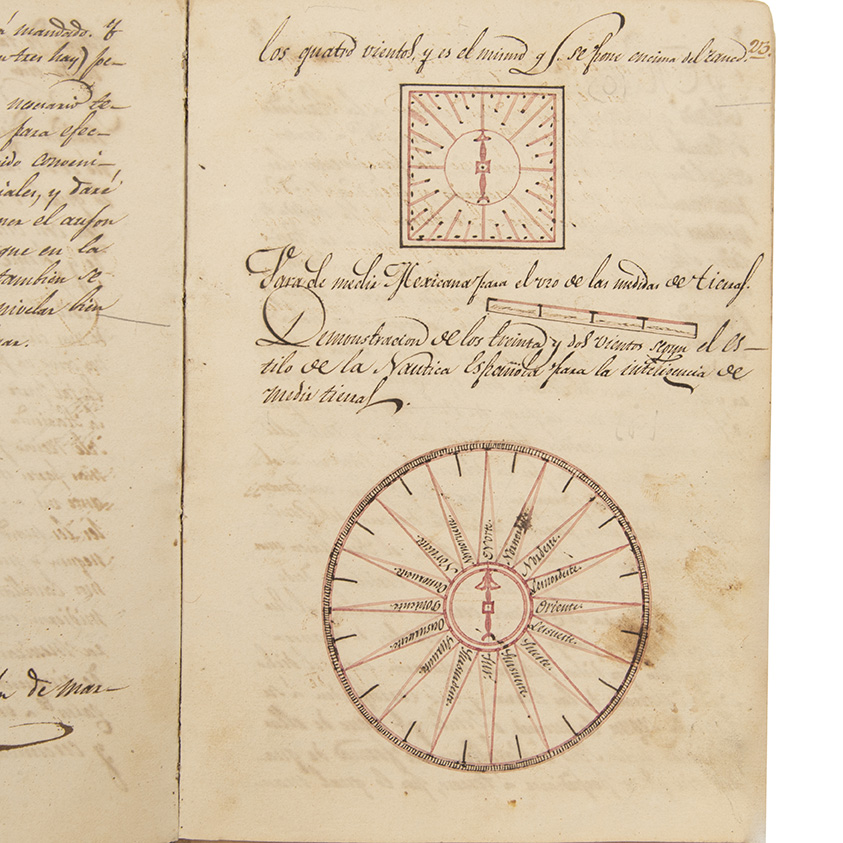 á mandado. Y
tres hay) pe-
necesario te-
para efec-
ido conveni-
iales, y daré
ner el aufon
que en la
tambien se
nivelar bien
ar.
de Mar-
23.
los quatro vientos, y es el mismo q.e se pone encima del
Vara de medir Mexicana para el uso de las medidas de tierras.
Demostracion de los treinta y dos vientos segun el es-
tilo de la Nautica Española para la inteligencia de
medir tierras.
Norte.
Nordeste.
Lesnordeste.
Oriente.
Lessueste.
Sueste.
Susueste.
Sur.
Poniente.
Noroeste.